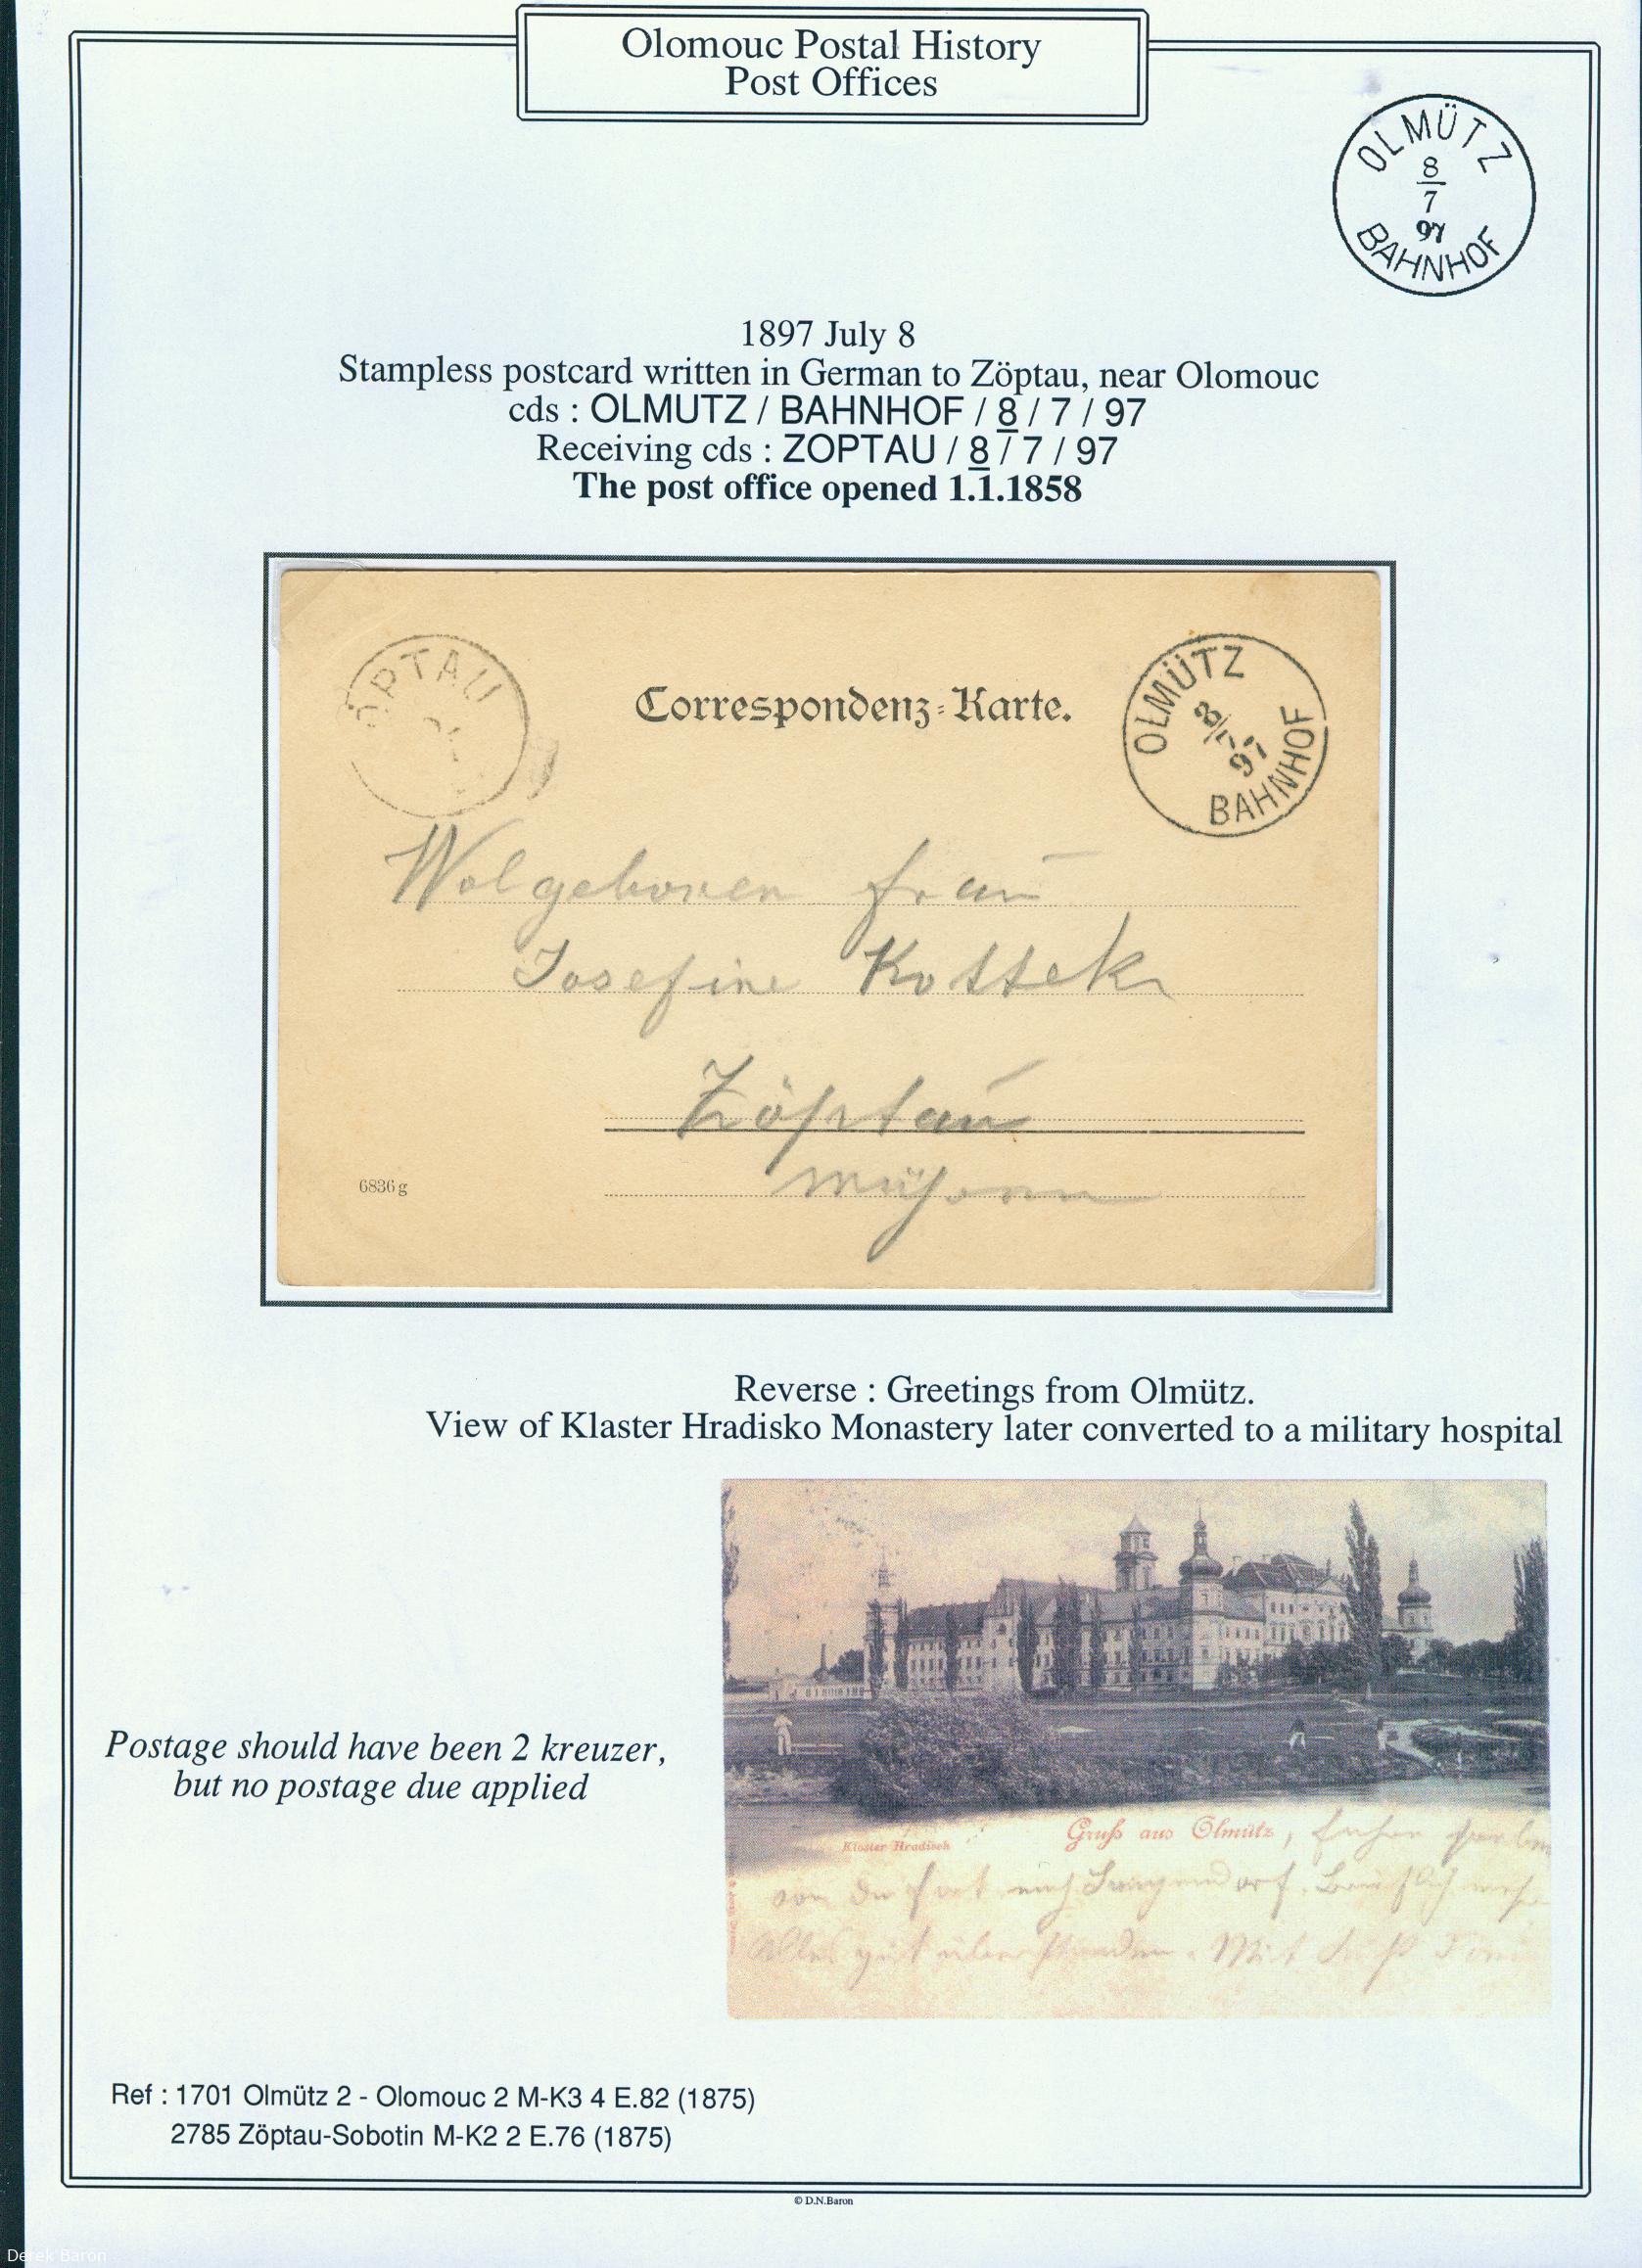 Olomouc Postal History
Post Offices
OLMÜTZ
8
7
97
BAHNHOF
1897 July 8
Stampless postcard written in German to Zöptau, near Olomouc
cds : OLMUTZ / BAHNHOF / 8 / 7 / 97
Receiving cds : ZOPTAU / 8 / 7 / 97
The post office opened 1.1.1858
ÖPTAU
Correspondenz-Karte.
OLMÜTZ
8/7
97
BAHNHOF
Wolgeboren Frau
Josefine Kottek
Zöptau
6836g
Reverse : Greetings from Olmütz.
View of Klaster Hradisko Monastery later converted to a military hospital
Kloster Hradisch
Gruß aus Olmütz,
Alles gut überstanden. Mit
Postage should have been 2 kreuzer,
but no postage due applied
Ref : 1701 Olmütz 2 - Olomouc 2 M-K3 4 E.82 (1875)
2785 Zöptau-Sobotin M-K2 2 E.76 (1875)
© D.N.Baron
Derek Baron